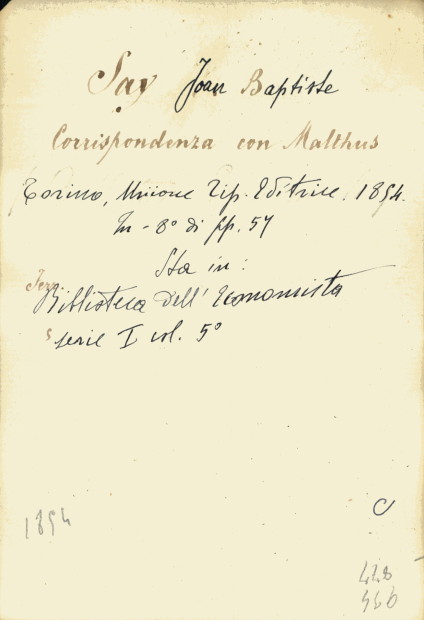 Say Joan Baptiste
Corrispondenza con Malthus
Torino, Unione Tip. Editrice. 1854.
In - 8° di pp. 57
Sta in:
Biblioteca dell' Economista
serie I vol. 5°
1854
C